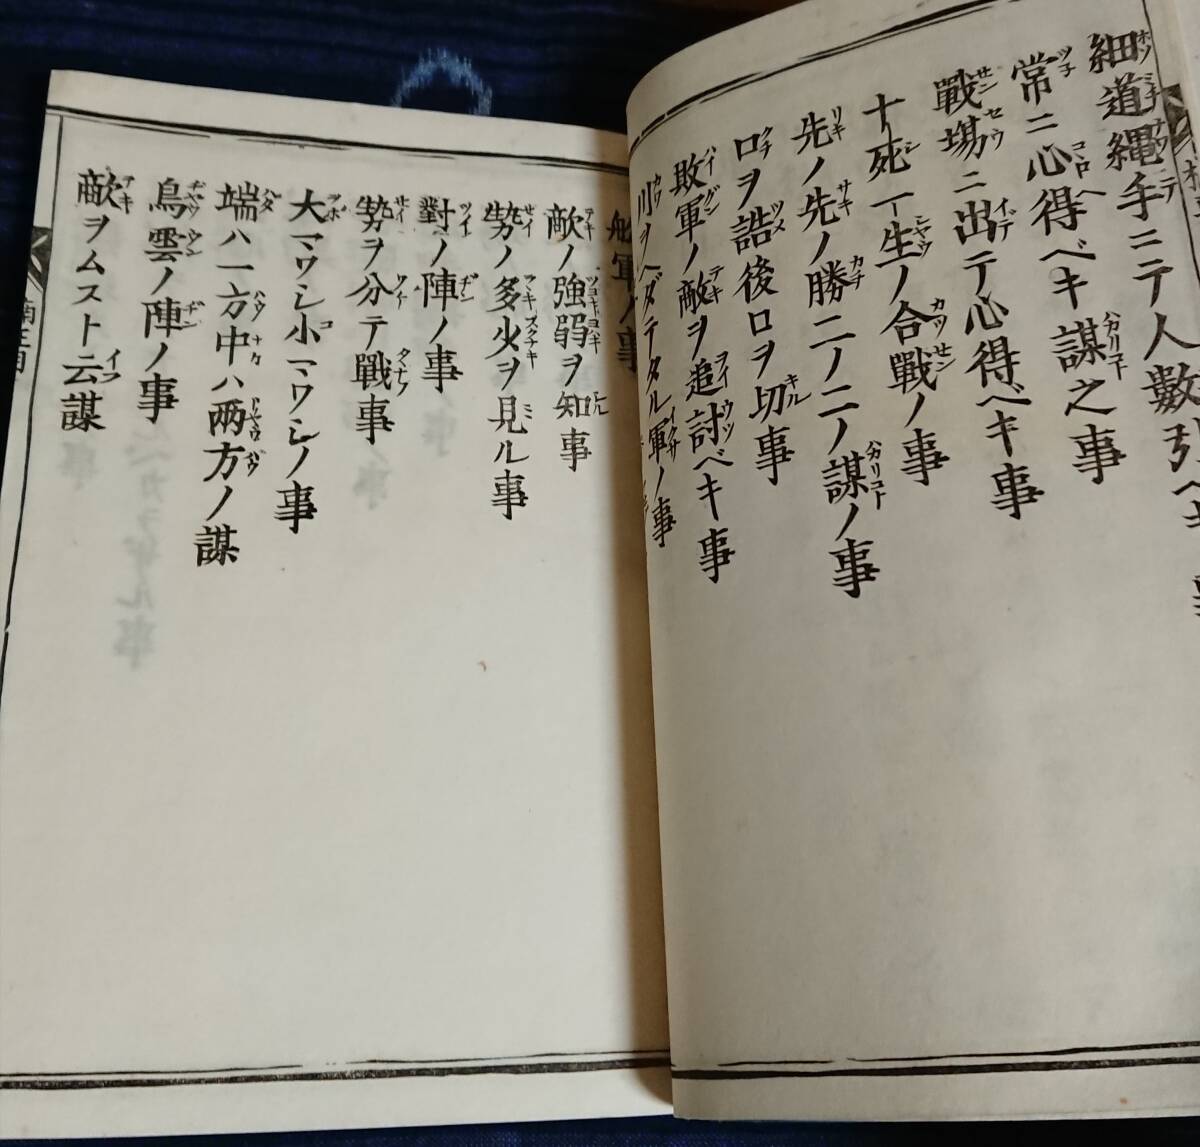 細道縄手ニテ人数引ベキ事
常ニ心得ベキ謀之事
戰場ニ出テ心得ベキ事
十死一生ノ合戰ノ事
先ノ先ノ勝二ノ二ノ謀ノ事
口ヲ詰後ロヲ切事
敗軍ノ敵ヲ追討ベキ事
川ヲヘダテタル軍ノ事
舩軍ノ事
敵ノ強弱ヲ知事
勢ノ多少ヲ見ル事
對ノ陣ノ事
勢ヲ分テ戰事
大マワシ小マワシノ事
端ハ一方中ハ両方ノ謀
鳥雲ノ陣ノ事
敵ヲムスト云謀